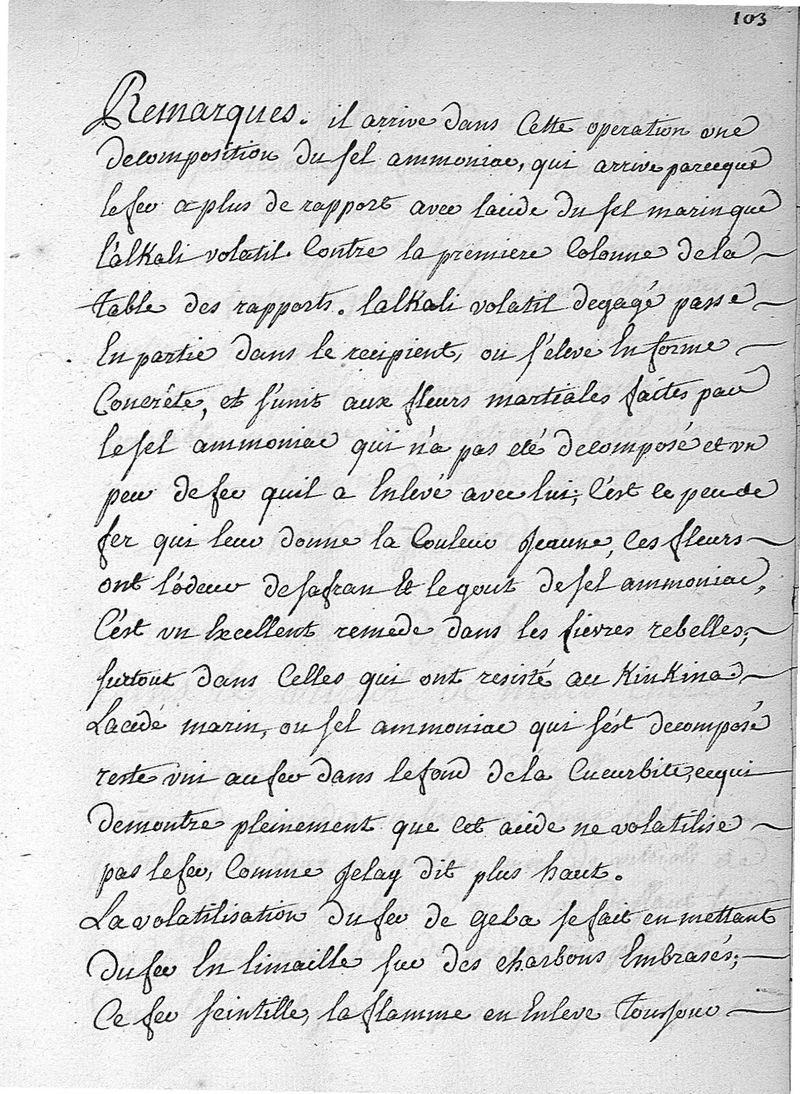 103
Remarques. il arrive dans Cette operation une
decomposition du sel ammoniac, qui arrive parceque
le fer a plus de rapport avec lacide du sel marin que
l'alKali volatil. Contre la premiere Colonne de la
table des rapports. lalKali volatil degagé passe
En partie dans le recipient, ou s'eleve En forme
Concréte, et s'unit aux fleurs martiales faites par
le sel ammoniac qui n'a pas eté decomposé et un
peu de fer quil a Enlevé avec lui, C'est ce peu de
fer qui leur donne la Couleur Jeaune, Ces fleurs
ont l'ódeur de safran Et le gout de sel ammoniac,
C'est un Excellent remede dans les fievres rebelles,
surtout dans Celles qui ont resisté au KinKina
Lacide marin, ou sel ammoniac qui s'ést decomposé
reste uni au fer dans le fond de la Cucurbite, ce qui
demontre pleinement que cet acide ne volatilise
pas le fer, Comme Jelay dit plus haut.
La volatilisation du fer de Geba se fait en mettant
du fer En limaille sur des charbons Embrasés;
Ce fer scintille, la flamme en Enleve Toujour